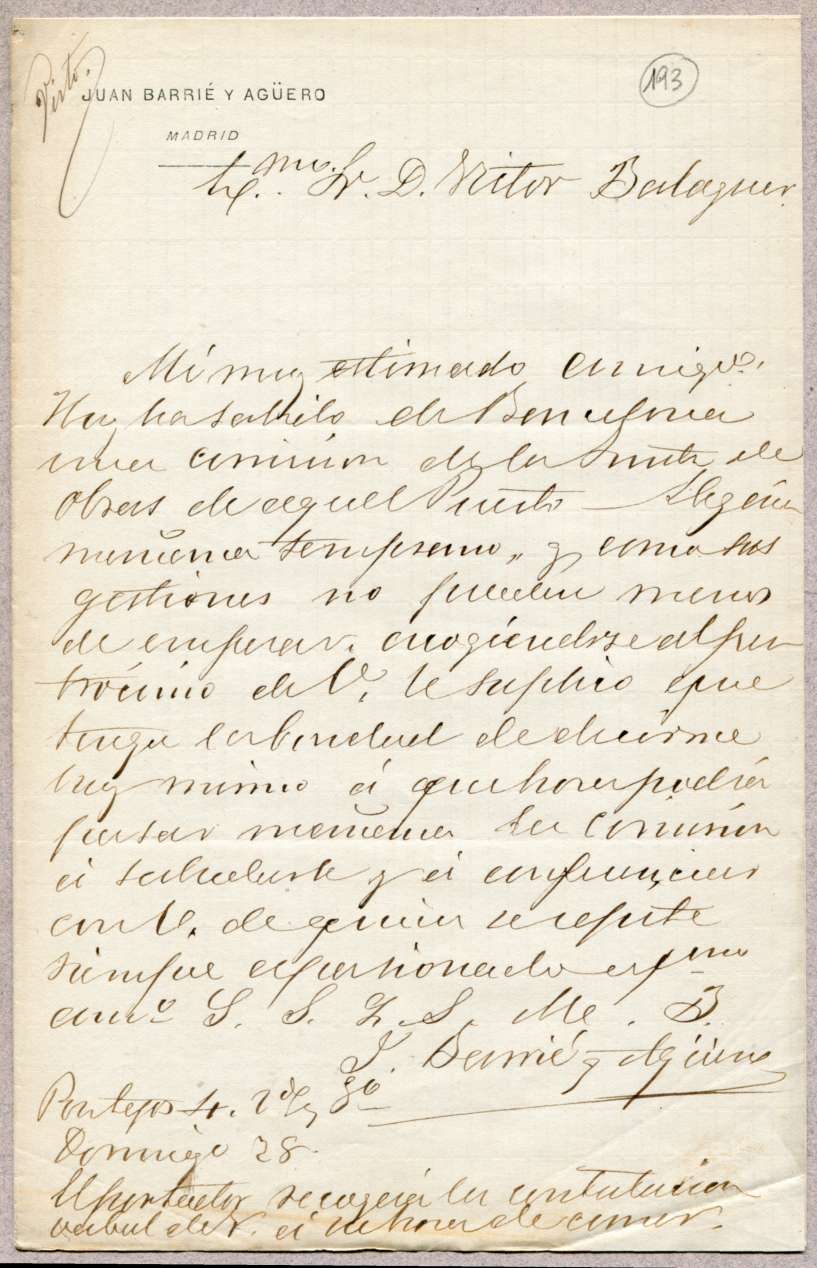 Visto.
JUAN BARRIÉ Y AGÜERO
193
MADRID
Exmo. Sr. D. Victor Balaguer.
Mi muy estimado amigo.
Hoy ha salido de Barcelona
una comision de la Junta de
Obras de aquel Puerto - Llegará
mañana temprano, y como sus
gestiones no pueden menos
de empezar acogiendose al pa
trocinio de V. le suplico que
tenga la bondad de decirme
hoy mismo á que hora podrá
pasar mañana la comision
á saludarle y á conferenciar
con V. de quien se repite
siempre apasionado
amº S. S. Q. S. M. B.
J. Barrié y Agüero
Pontejos 4.
Domingo 28.
El portador recogerá la contestacion
verbal de V. á la hora de comer.